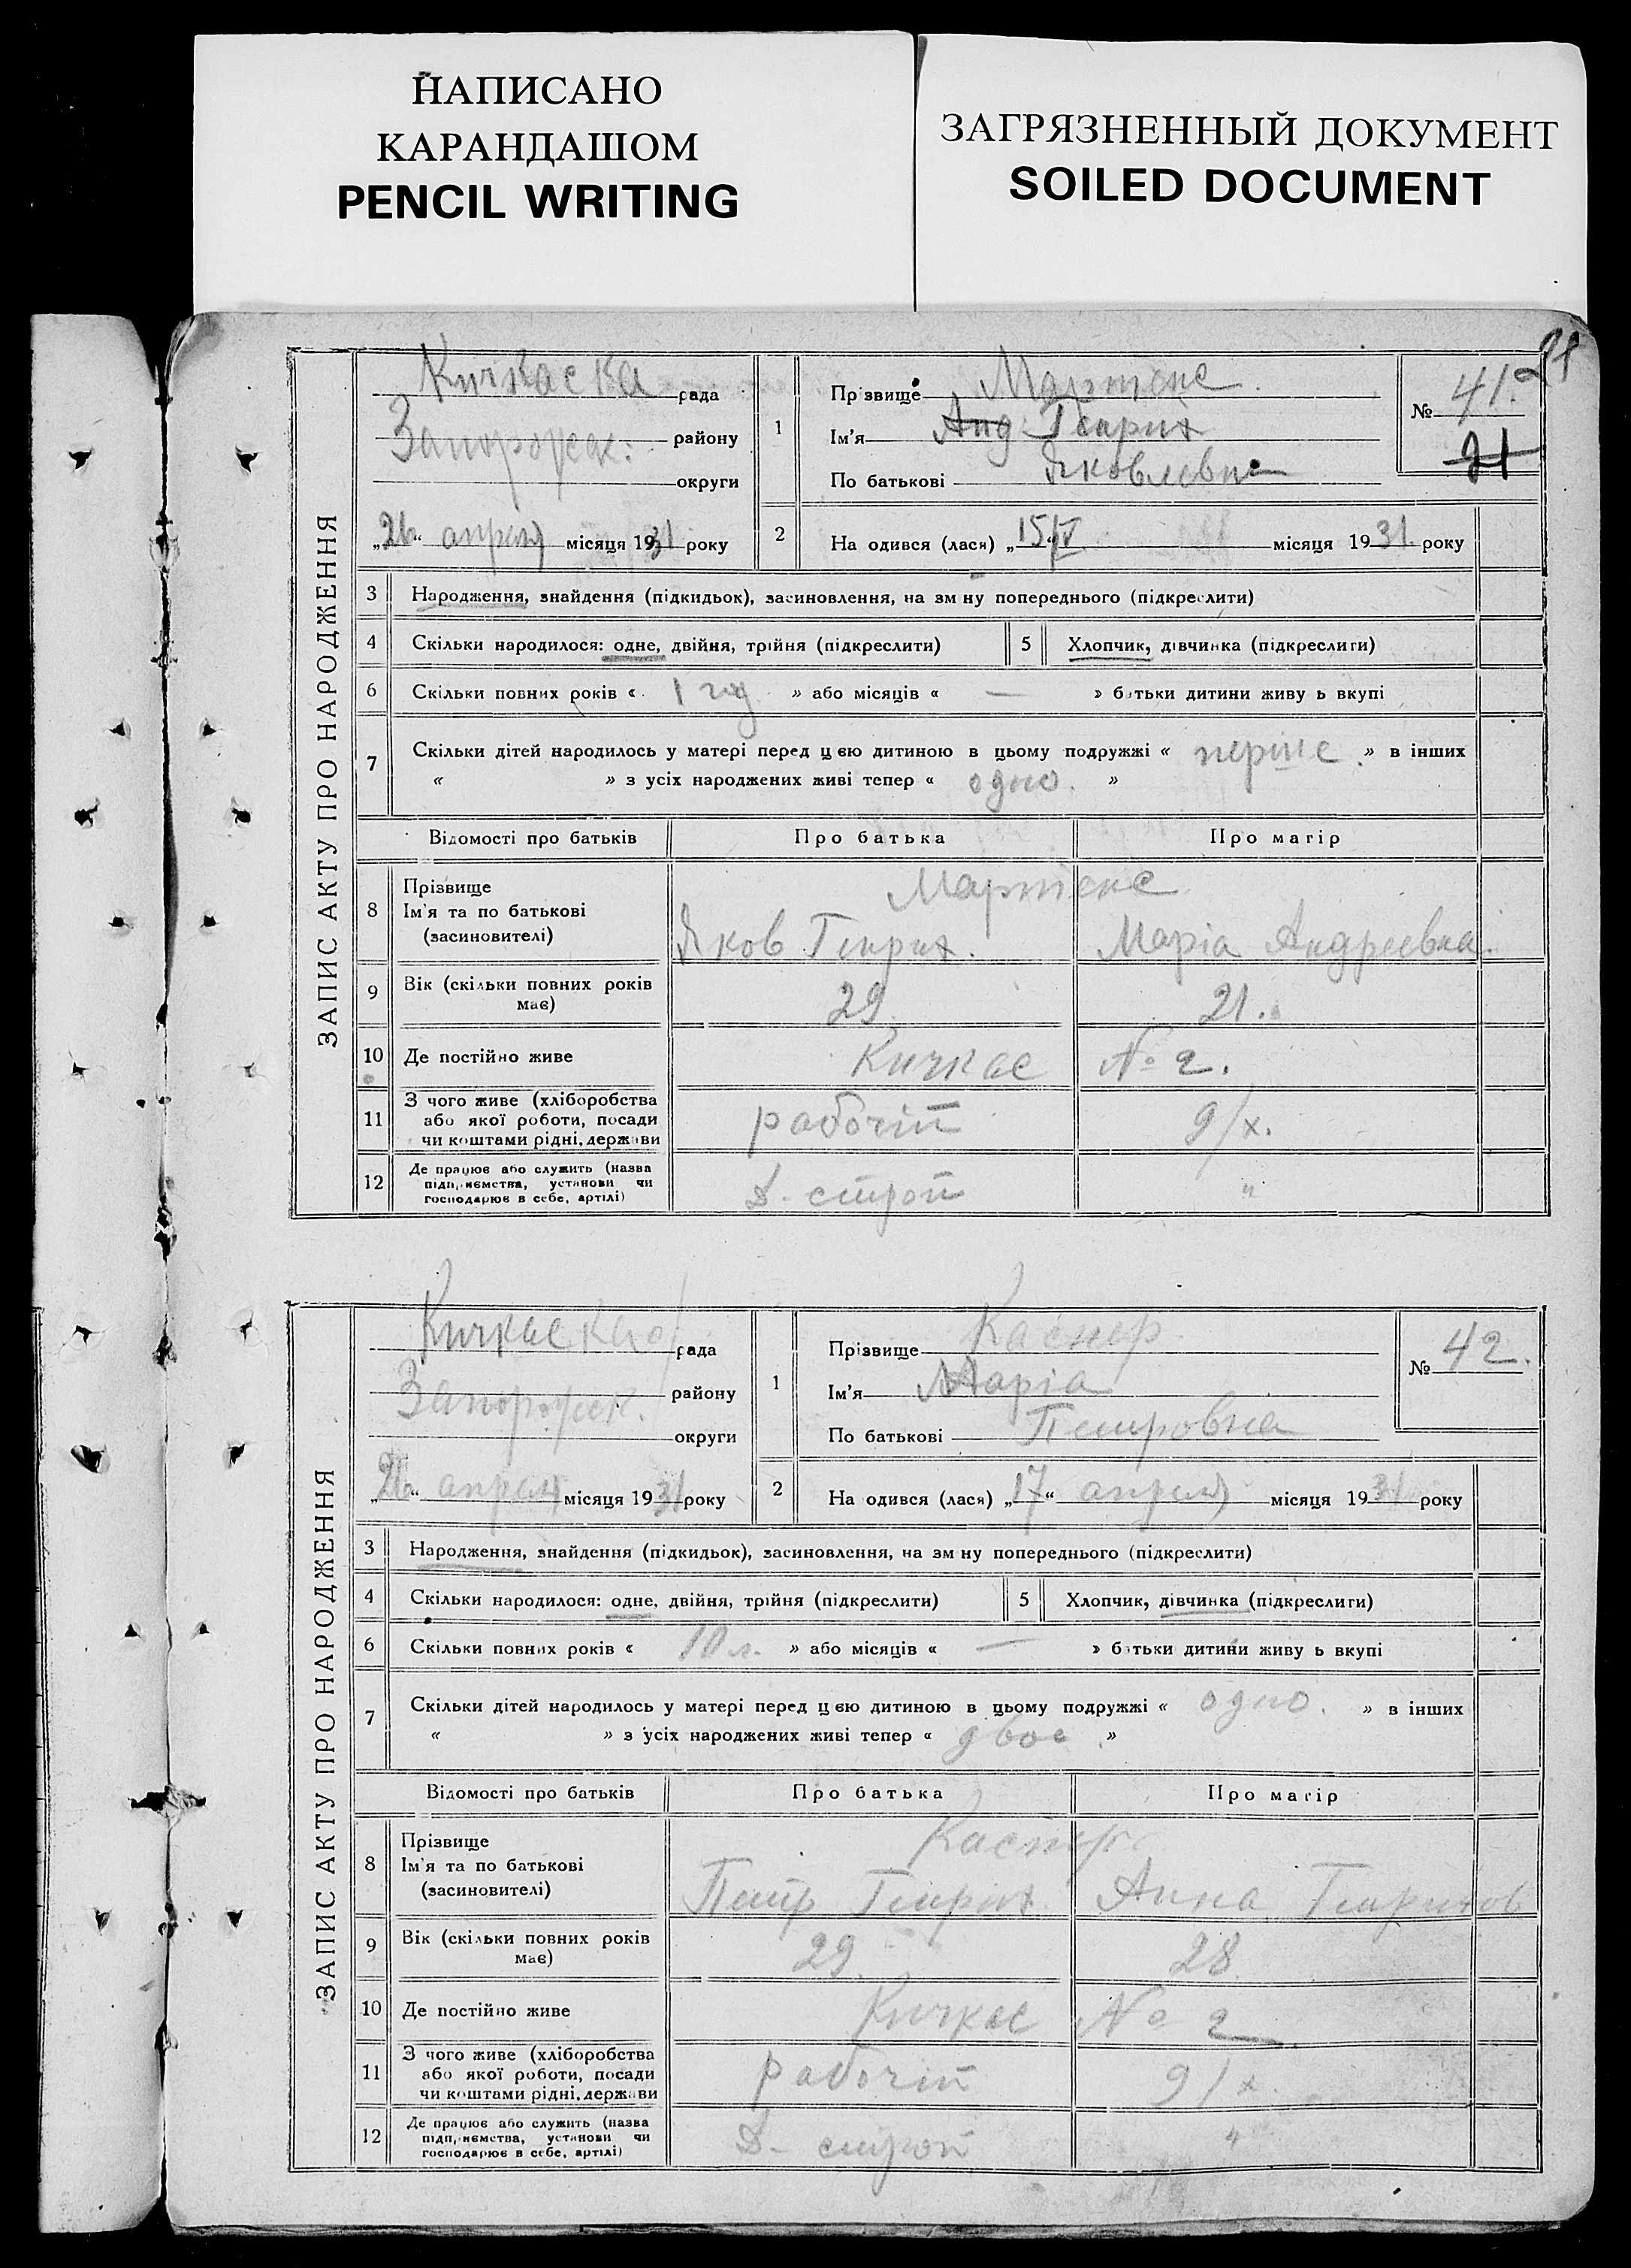 НАПИСАНО
КАРАНДАШОМ
PENCIL WRITING
ЗАГРЯЗНЕННЫЙ ДОКУМЕНТ
SOILED DOCUMENT
ЗАПИС АКТУ ПРО НАРОДЖЕННЯ
Кичкаска рада
Запорожск. району
округи
„26“ апреля місяця 1931 року
1
Прізвище Мартенс.
Ім'я Анд. Генрих
По батькові Яковлевич
№ 41.
21
2 На одився (лася) „15/IV“ місяця 1931. року
3 Народження, знайдення (підкидьок), засиновлення, на зм ну попереднього (підкреслити)
4 Скільки народилося: одне, двійня, трійня (підкреслити) 5 Хлопчик, дівчинка (підкреслити)
6 Скільки повних років « 1 год » або місяців « — » батьки дитини живу ь вкупі
7 Скільки дітей народилось у матері перед цею дитиною в цьому подружжі « перше. » в інших
« » з усіх народжених живі тепер « одно. »
Відомості про батьків Про батька Про матір
8 Прізвище Мартенс
Ім'я та по батькові Яков Генрих. Маріа Андреевна.
(засиновителі)
9 Вік (скільки повних років має) 29. 21.
10 Де постійно живе Кичкас № 2.
11 З чого живе (хліборобства
або якої роботи, посади рабочій д/х.
чи коштами рідні, держави
12 Де працює або служить (назва
підприємства, установи чи Д-строй "
господарює в себе, артілі)
ЗАПИС АКТУ ПРО НАРОДЖЕННЯ
Кичкаская рада
Запорожск. району
округи
„26“ апреля місяця 1931 року
1
Прізвище Каспер.
Ім'я Маріа
По батькові Петровна
№ 42.
2 На одився (лася) „17“ апреля місяця 1931 року
3 Народження, знайдення (підкидьок), засиновлення, на зм ну попереднього (підкреслити)
4 Скільки народилося: одне, двійня, трійня (підкреслити) 5 Хлопчик, дівчинка (підкреслити)
6 Скільки повних років « 10 л. » або місяців « — » батьки дитини живу ь вкупі
7 Скільки дітей народилось у матері перед цею дитиною в цьому подружжі « одно. » в інших
« » з усіх народжених живі тепер « двое. »
Відомості про батьків Про батька Про матір
8 Прізвище Каспер
Ім'я та по батькові Петр Генрих Анна Генрихов
(засиновителі)
9 Вік (скільки повних років має) 29. 28
10 Де постійно живе Кичкас № 2
11 З чого живе (хліборобства
або якої роботи, посади рабочій д/х
чи коштами рідні, держави
12 Де працює або служить (назва
підприємства, установи чи Д-строй "
господарює в себе, артілі)